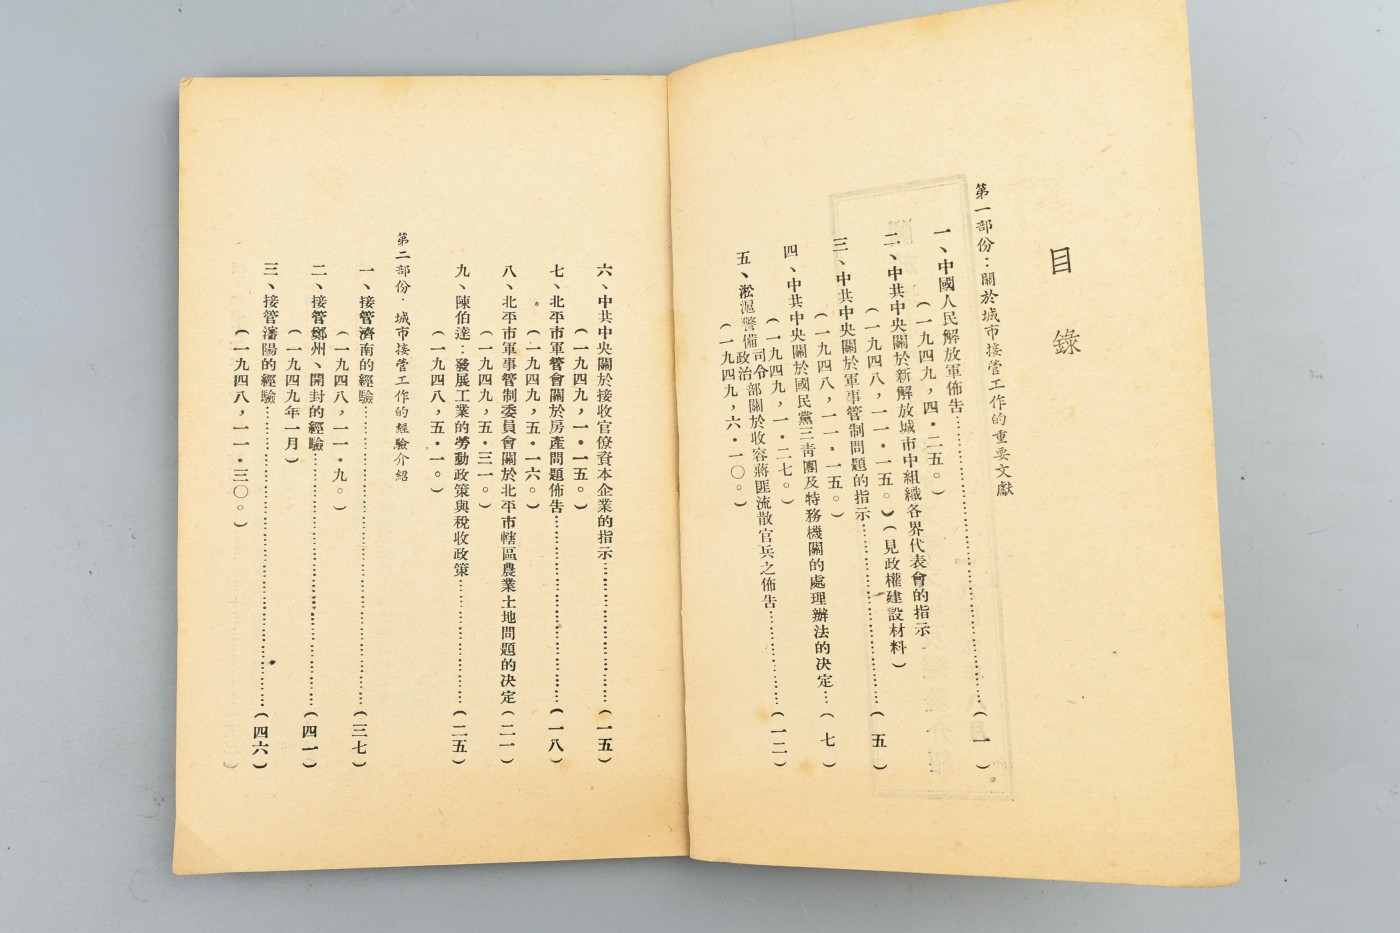 目錄
第一部份：關於城市接管工作的重要文獻
一、中國人民解放軍佈告……………………（一）
（一九四九，四・二五。）
二、中共中央關於新解放城市中組織各界代表會的指示
（一九四八，一一・一五。）（見政權建設材料）
三、中共中央關於軍事管制問題的指示……………………（五）
（一九四八，一一・一五。）
四、中共中央關於國民黨三靑團及特務機關的處理辦法的決定…（七）
（一九四九，一・二七。）
五、淞滬警備司令部政治部關於收容蔣匪流散官兵之佈告……………（一二）
（一九四九，六・一〇。）
六、中共中央關於接收官僚資本企業的指示……………………（一五）
（一九四九，一・一五。）
七、北平市軍管會關於房產問題佈告……………………（一八）
（一九四九，五・一六。）
八、北平市軍事管制委員會關於北平市轄區農業土地問題的決定（二一）
（一九四九，五・三一。）
九、陳伯達：發展工業的勞動政策與稅收政策……………………（二五）
（一九四八，五・一。）
第二部份・城市接管工作的經驗介紹
一、接管濟南的經驗……………………（三七）
（一九四八，一一・九。）
二、接管鄭州、開封的經驗……………………（四一）
（一九四九年一月）
三、接管瀋陽的經驗……………………（四六）
（一九四八，一一・三〇。）